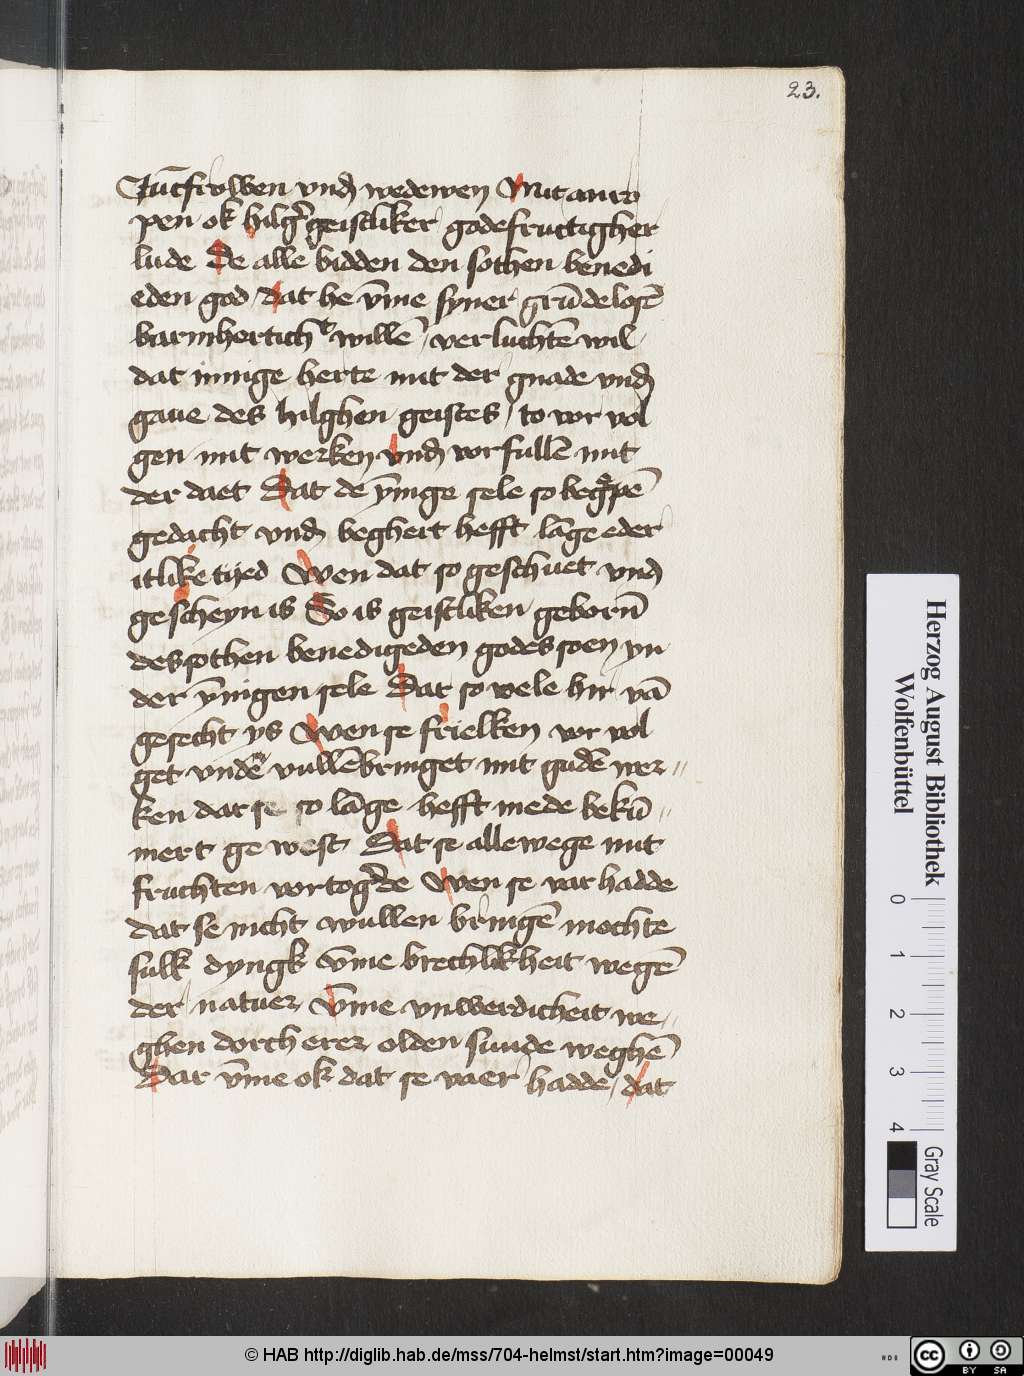 23.
Jūcfrowen vnd wedewen Mit anro
pen ok hilgr̄ geistliker godefruttigher
lude De alle bidden den sothen benedi
eden god dat he v̄me syner grūdelosē
barmherticht willē verluchtē wil
dat innige herte mit der gnade vnd
gaue des hilghen geistes to vor vol
gen mit werken vnd vorfullē mit
der daet Dat de ȳnige sele so begrͣpē
gedacht vnd begheit hefft lāge eder
itlike tijed Wen dat so geschuet vnd
gescheyn is So is geistliken geborn̄
des sothen benedigeden godes soen yn
der ȳnigen sele Dat so vele hir vā
gesecht ys Wen se frielken vor vol
get vnde vullēbringet mit gudē wer
ken dat se so lāge hefft mede bekū
mert ge west Dat se allewege mit
fruchten vortogͤde Wen se var hadde
dat se nicht wullen bringē mochte
sulk dyngk v̄me brechlikheit wegē
der natuer v̄me vnwerdicheit we
ghen dorch erer olden sunde weghē
Dar v̄me ok dat se vaer hadde dat
Herzog August Bibliothek
Wolfenbüttel
0 1 2 3 4
Gray Scale
© HAB http://diglib.hab.de/mss/704-helmst/start.htm?image=00049
cc BY SA